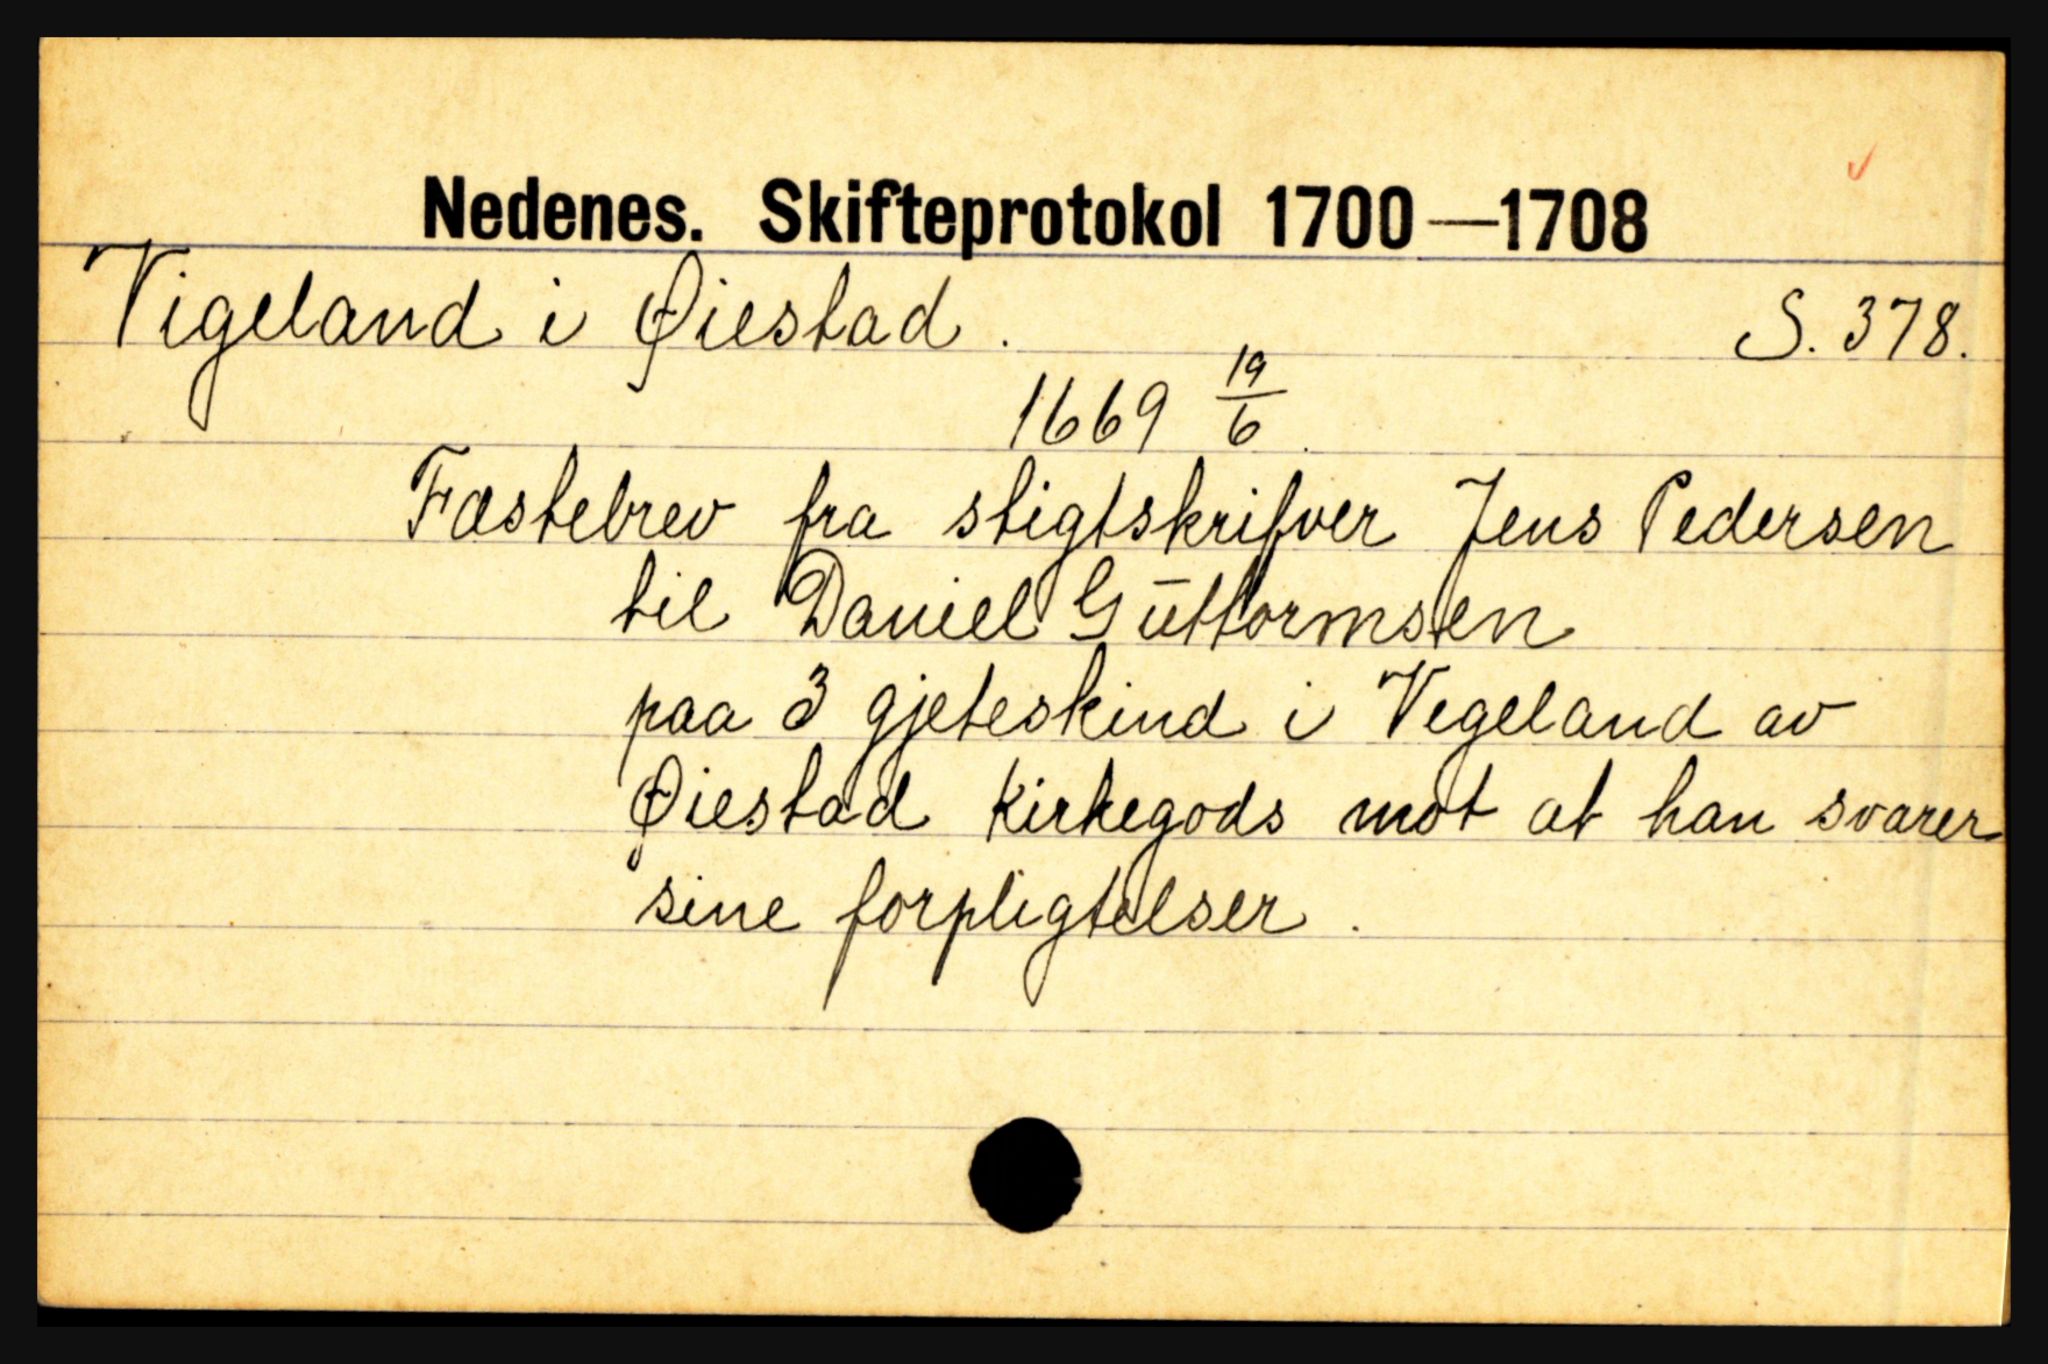 Nedenes. Skifteprotokol 1700—1708
Vigeland i Øiestad. S. 378.
1669 19/6.
Fæstebrev fra stigtskrifver Jens Pedersen
til Daniel Guttormsen
paa 3 gjeteskind i Vegeland av
Øiestad Kirkegods mot at han svarer
sine forpligtelser.